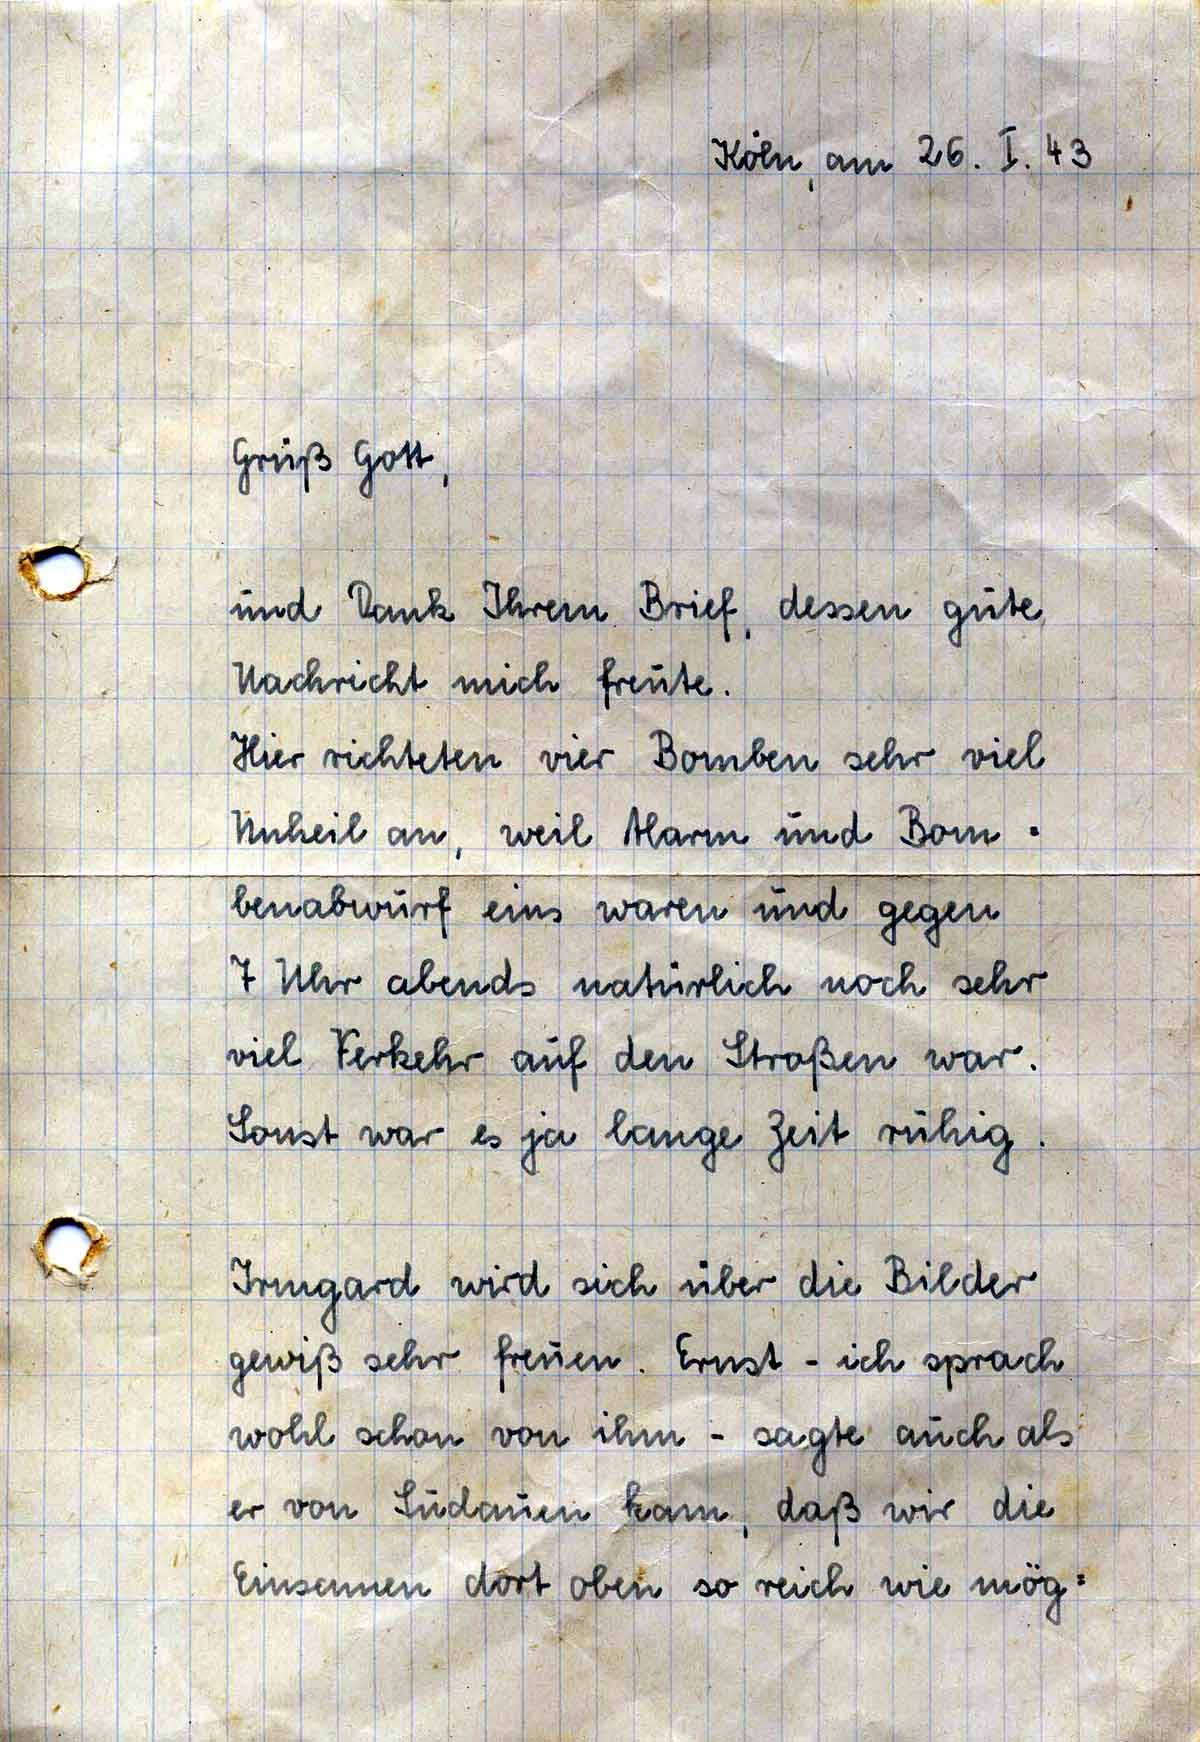 Köln, am 26. I. 43
Grüß Gott,
und Dank Ihrem Brief, dessen gute
Nachricht mich freute.
Hier richteten vier Bomben sehr viel
Unheil an, weil Alarm und Bom-
benabwurf eins waren und gegen
7 Uhr abends natürlich noch sehr
viel Verkehr auf den Straßen war.
Sonst war es ja lange Zeit ruhig.
Irmgard wird sich über die Bilder
gewiß sehr freuen. Ernst - ich sprach
wohl schon von ihm - sagte auch als
er von Sudauen kam, daß wir die
Einsamen dort oben so reich wie mög=